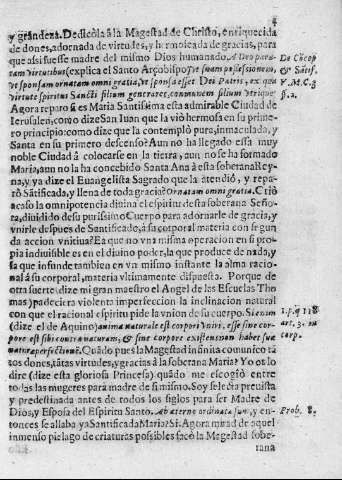 4
y grandeza. Dedicòla à la Magestad de Christo, enriquecida
de dones, adornada de virtudes, y hermoseada de gracias, para
que assi fuesse madre del mismo Dios humanado. A Deo para-
tam virtutibus (explica el Santo Arçobispo) Vt suam possessionem,
vt sponsam ornatam omni gratia, Vt sponsa esset Dei Patris, ex qua
virtute spiritus Sancti filium generaret, communem filium vtrique.
De Cõcep
& Satif.
V.M.C.3
p. 2.
Agora reparo: si es Maria Santissima esta admirable Ciudad de
Ierusalen, como dize San Iuan que la viò hermosa en su primer
principio: como dize que la contemplò pura, inmaculada, y
Santa en su primero descenso? Aun no ha llegado essa muy
noble Ciudad à colocarse en la tierra, aun no se ha formado
Maria, aun no la ha concebido Santa Ana à esta soberana Rey-
na, y ya dize el Euangelista Sagrado que la atendiò, y repa-
rò Sãtificada, y llena de toda gracia? Ornatam omni gratia. Criò
acaso la omnipotencia divina el espiritu desta soberana Seño-
ra, diuidido de su purissimo Cuerpo para adornarle de gracia, y
vnirle despues de Santificado, à su corporal materia con segun
da accion vnitiua? Ea que no vna misma operacion en si pro-
pia indiuisible es en el diuino poder, la que produce de nada, y
la que infunde tambien en vn mismo instante la alma racio-
nal à su corporal, materia vltimamente dispuesta. Porque de
otra suerte (dize mi gran maestro el Angel de las Escuelas Tho
mas) padeciera violenta imperfeccion la inclinacion natural
con que el racional espiritu pide la vnion de su cuerpo. Sicenim
(dize el de Aquino) anima naturale est corpori vniri. esse sine cor-
pore est sibi contra naturam, & sine corpore existens non habet suæ
naturæ perfectionẽ.
1. p. q 118
art. 3. in
corp.
Quãdo pues la Magestad infinita comunicò tã
tos dones, tãtas virtudes, y gracias à la soberana Maria? Yo os lo
dire (dize esta gloriosa Princesa) quãdo me escogiò entre
todas las mugeres para madre de si mismo. Soy selecta preuista
y predestinada antes de todos los siglos para ser Madre de
Dios, y Esposa del Espiritu Santo. Ab æterno ordinata sum, y en-
Prob. 8.
tonces se allaba ya Santificada Maria? Si. Agora mirad de aquel
inmenso pielago de criaturas possibles sacò la Magestad sobe-
rana